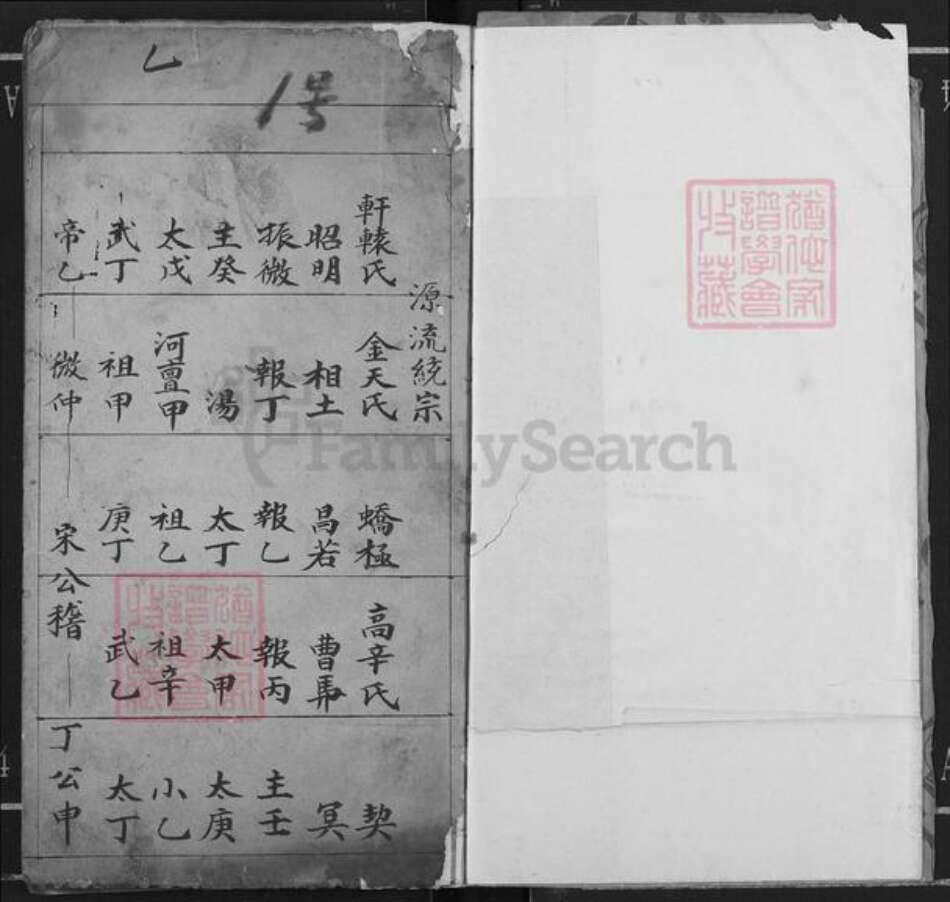 乙
1号
源流統宗
軒轅氏 金天氏 蟜極 高辛氏 契
昭明 相土 昌若 曹圉 冥
振微 報丁 報乙 報丙 主壬
主癸 湯 太丁 太甲 太庚
太戊 河亶甲 祖乙 祖辛 小乙
武丁 祖甲 庚丁 武乙 太丁
帝乙 微仲 宋公稽 丁公申
FamilySearch